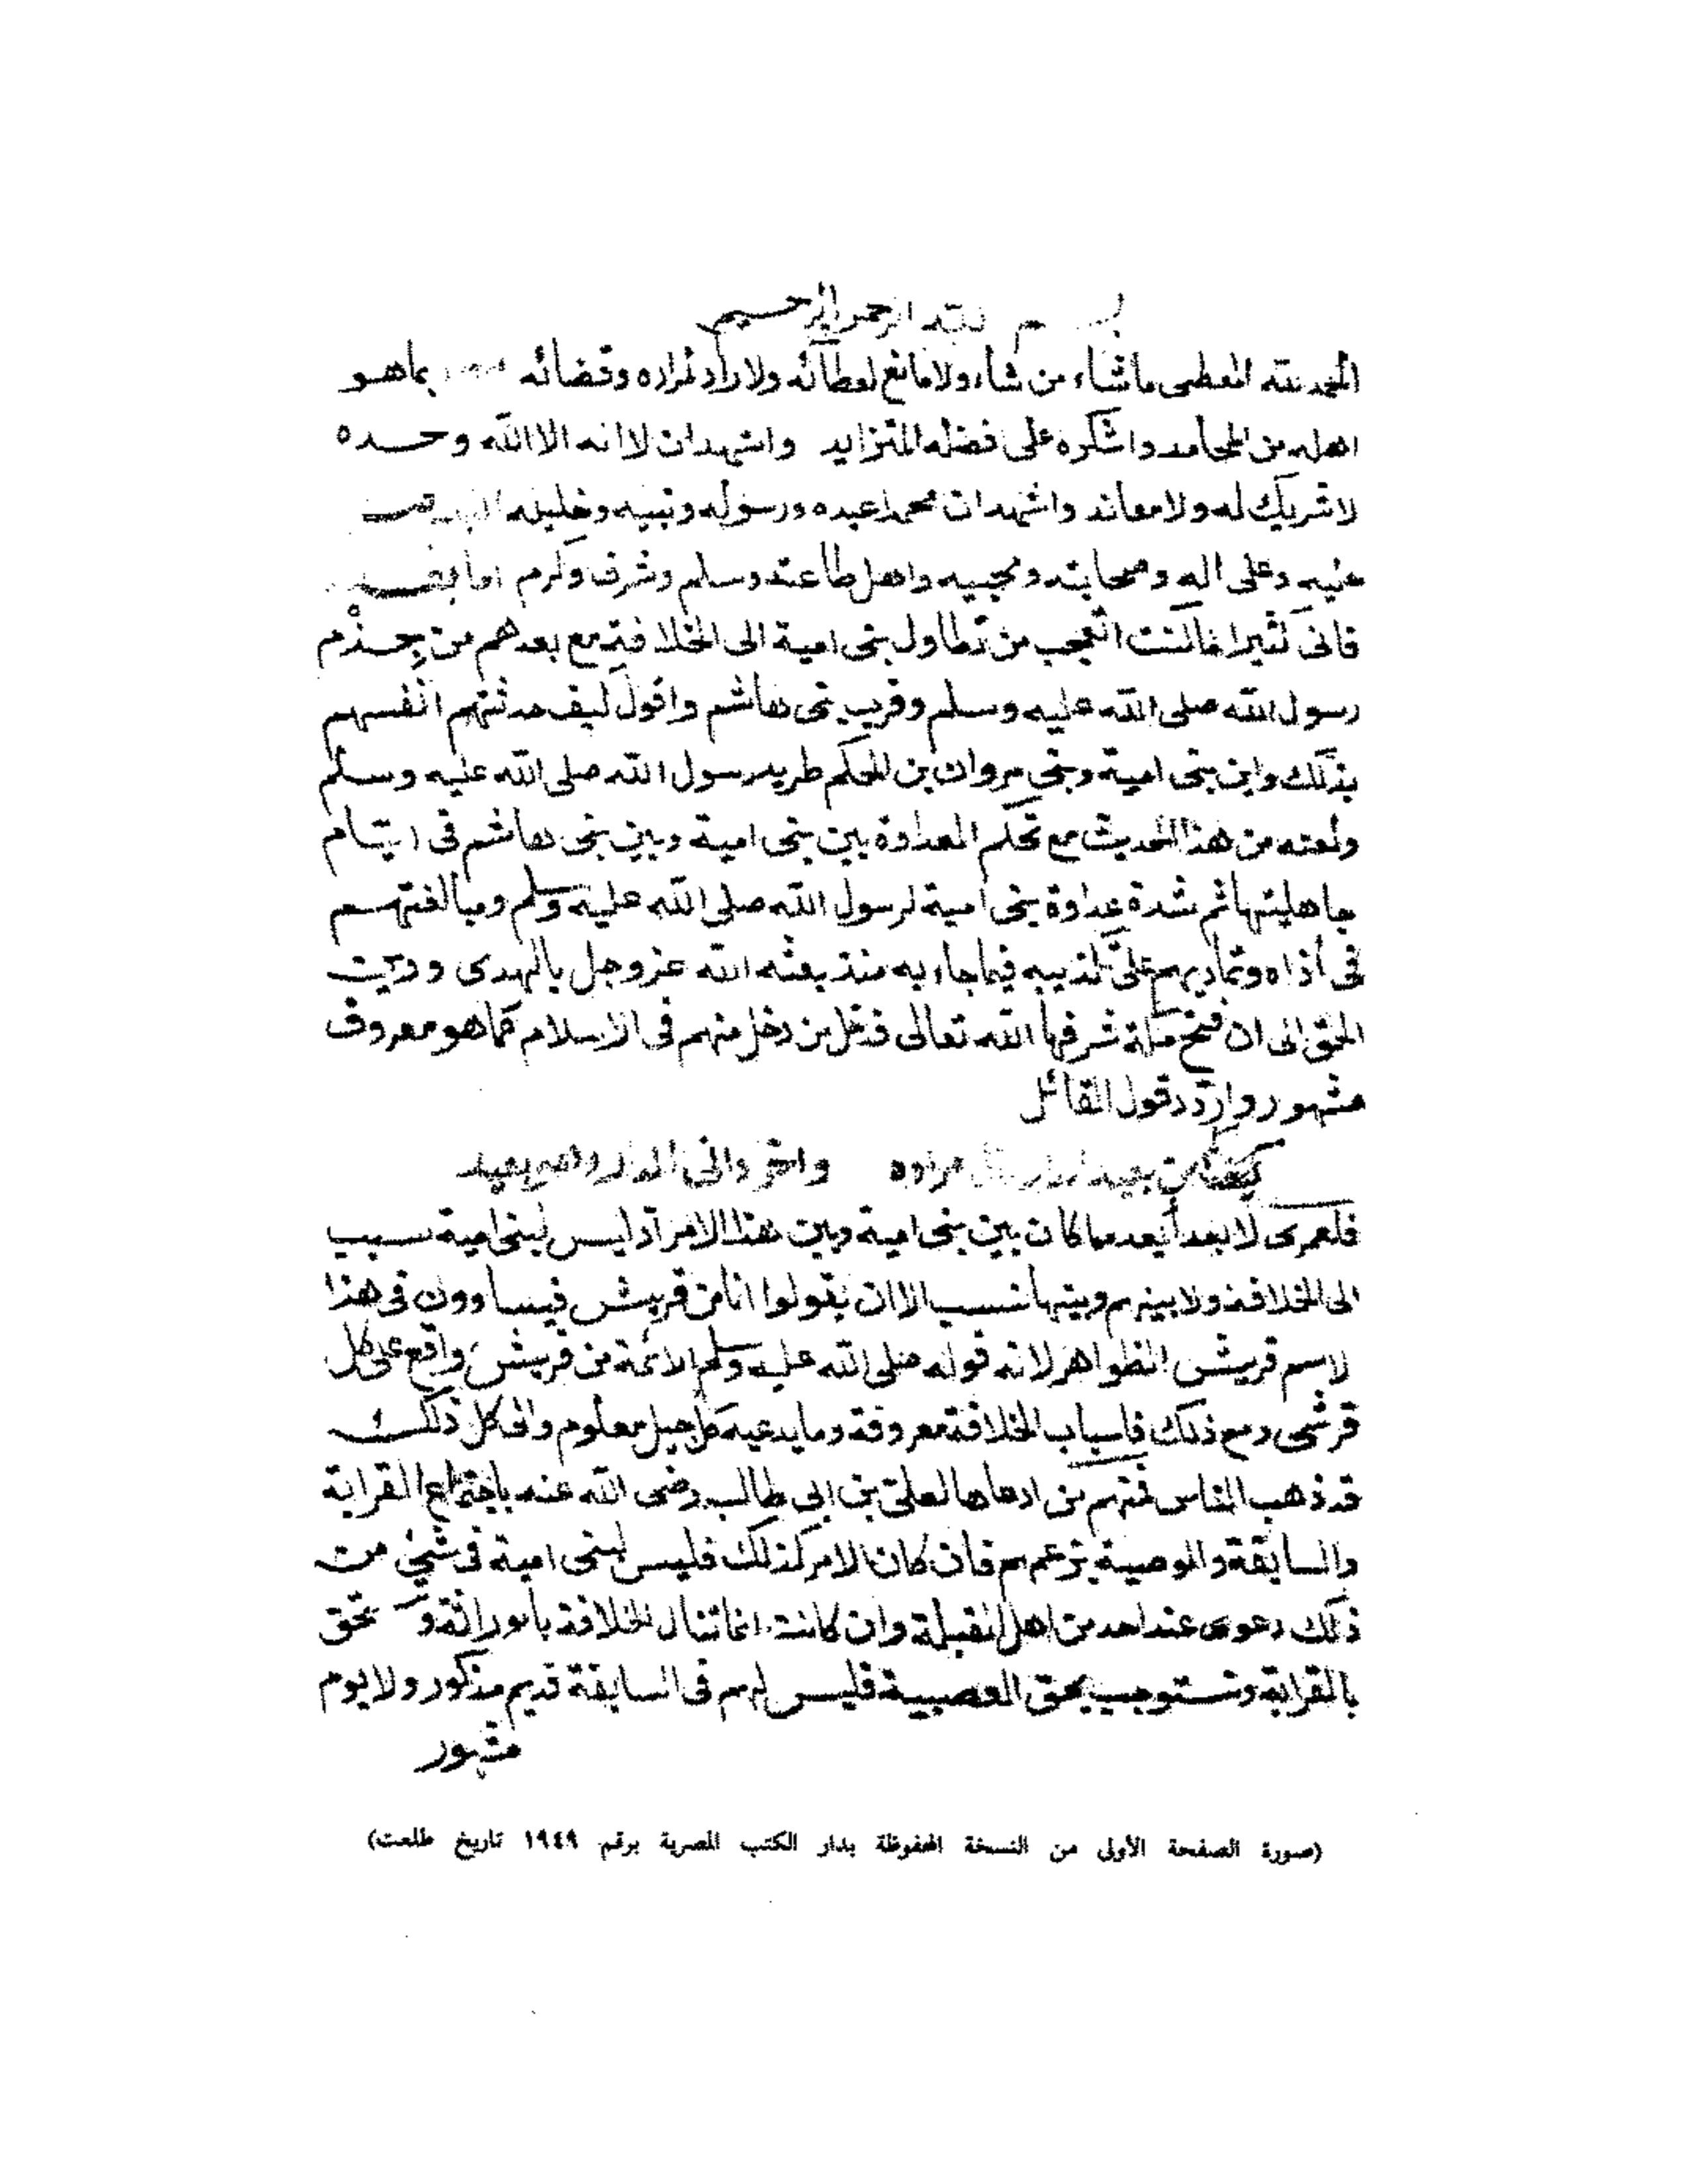 بسم الله الرحمن الرحيم
الحمد لله المعطى ماشاء من شاء ولا مانع لعطائه ولا راد لمراده وقضائه بما هو
اهله من المحامد واشكره على فضله المتزايد واشهد ان لا اله الا الله وحده
لا شريك له ولا معاند واشهد ان محمدا عبده ورسوله ونبيه وخليله
عليه وعلى اله وصحابته ومحبيه واهل طاعته وسلم وشرف وكرم اما بعد
فانى كثيرا ما كنت اتعجب من تطاول بنى امية الى الخلافة مع بعدهم من جِذْم
رسول الله صلى الله عليه وسلم وقرب بنى هاشم واقول كيف حدثتهم انفسهم
بذلك واين بنى امية وبنى مروان بن الحكم طريد رسول الله صلى الله عليه وسلم
ولعنه من هذا الحديث مع تحكم العداوة بين بنى امية وبين بنى هاشم فى ايام
جاهليتها ثم شدة عداوة بنى امية لرسول الله صلى الله عليه وسلم ومبالغتهم
فى أذاه وتماديهم على تكذيبه فيما جاء به منذ بعثه الله عز وجل بالهدى ودين
الحق الى ان فتح مكة شرفها الله تعالى فدخل من دخل منهم فى الاسلام كما هو معروف
مشهور واردد قول القائل
كم من بعيد الدار نال مراده واخر دانى الدار وهو بعيد
فلعمرى لا بعد أبعد مما كان بين بنى امية وبين هذا الامر اذ ليس لبنى امية سبب
الى الخلافة ولا بينهم وبينها نسب الا ان يقولوا انا من قريش فيساوون فى هذا
الاسم قريش الظواهر لانه قوله صلى الله عليه وسلم الائمة من قريش واقع على كل
قرشى ومع ذلك فاسباب الخلافة معروفة وما يدعيه كل جيل معلوم والى كل ذلك
قد ذهب الناس فمنهم من ادعاها لعلى بن ابى طالب رضى الله عنه باجتماع القرابة
والسابقة والوصية بزعمهم فان كان الامر كذلك فليس لبنى امية فى شئ من
ذلك دعوى عند احد من اهل القبلة وان كانت انما تنال الخلافة بالوراثة وتستحق
بالقرابة وتستوجب بحق العصبية فليس لهم فى السابقة قديم مذكور ولا يوم
مشهور
(صورة الصفحة الأولى من النسخة المحفوظة بدار الكتب المصرية برقم ١٩٤٩ تاريخ طلعت)